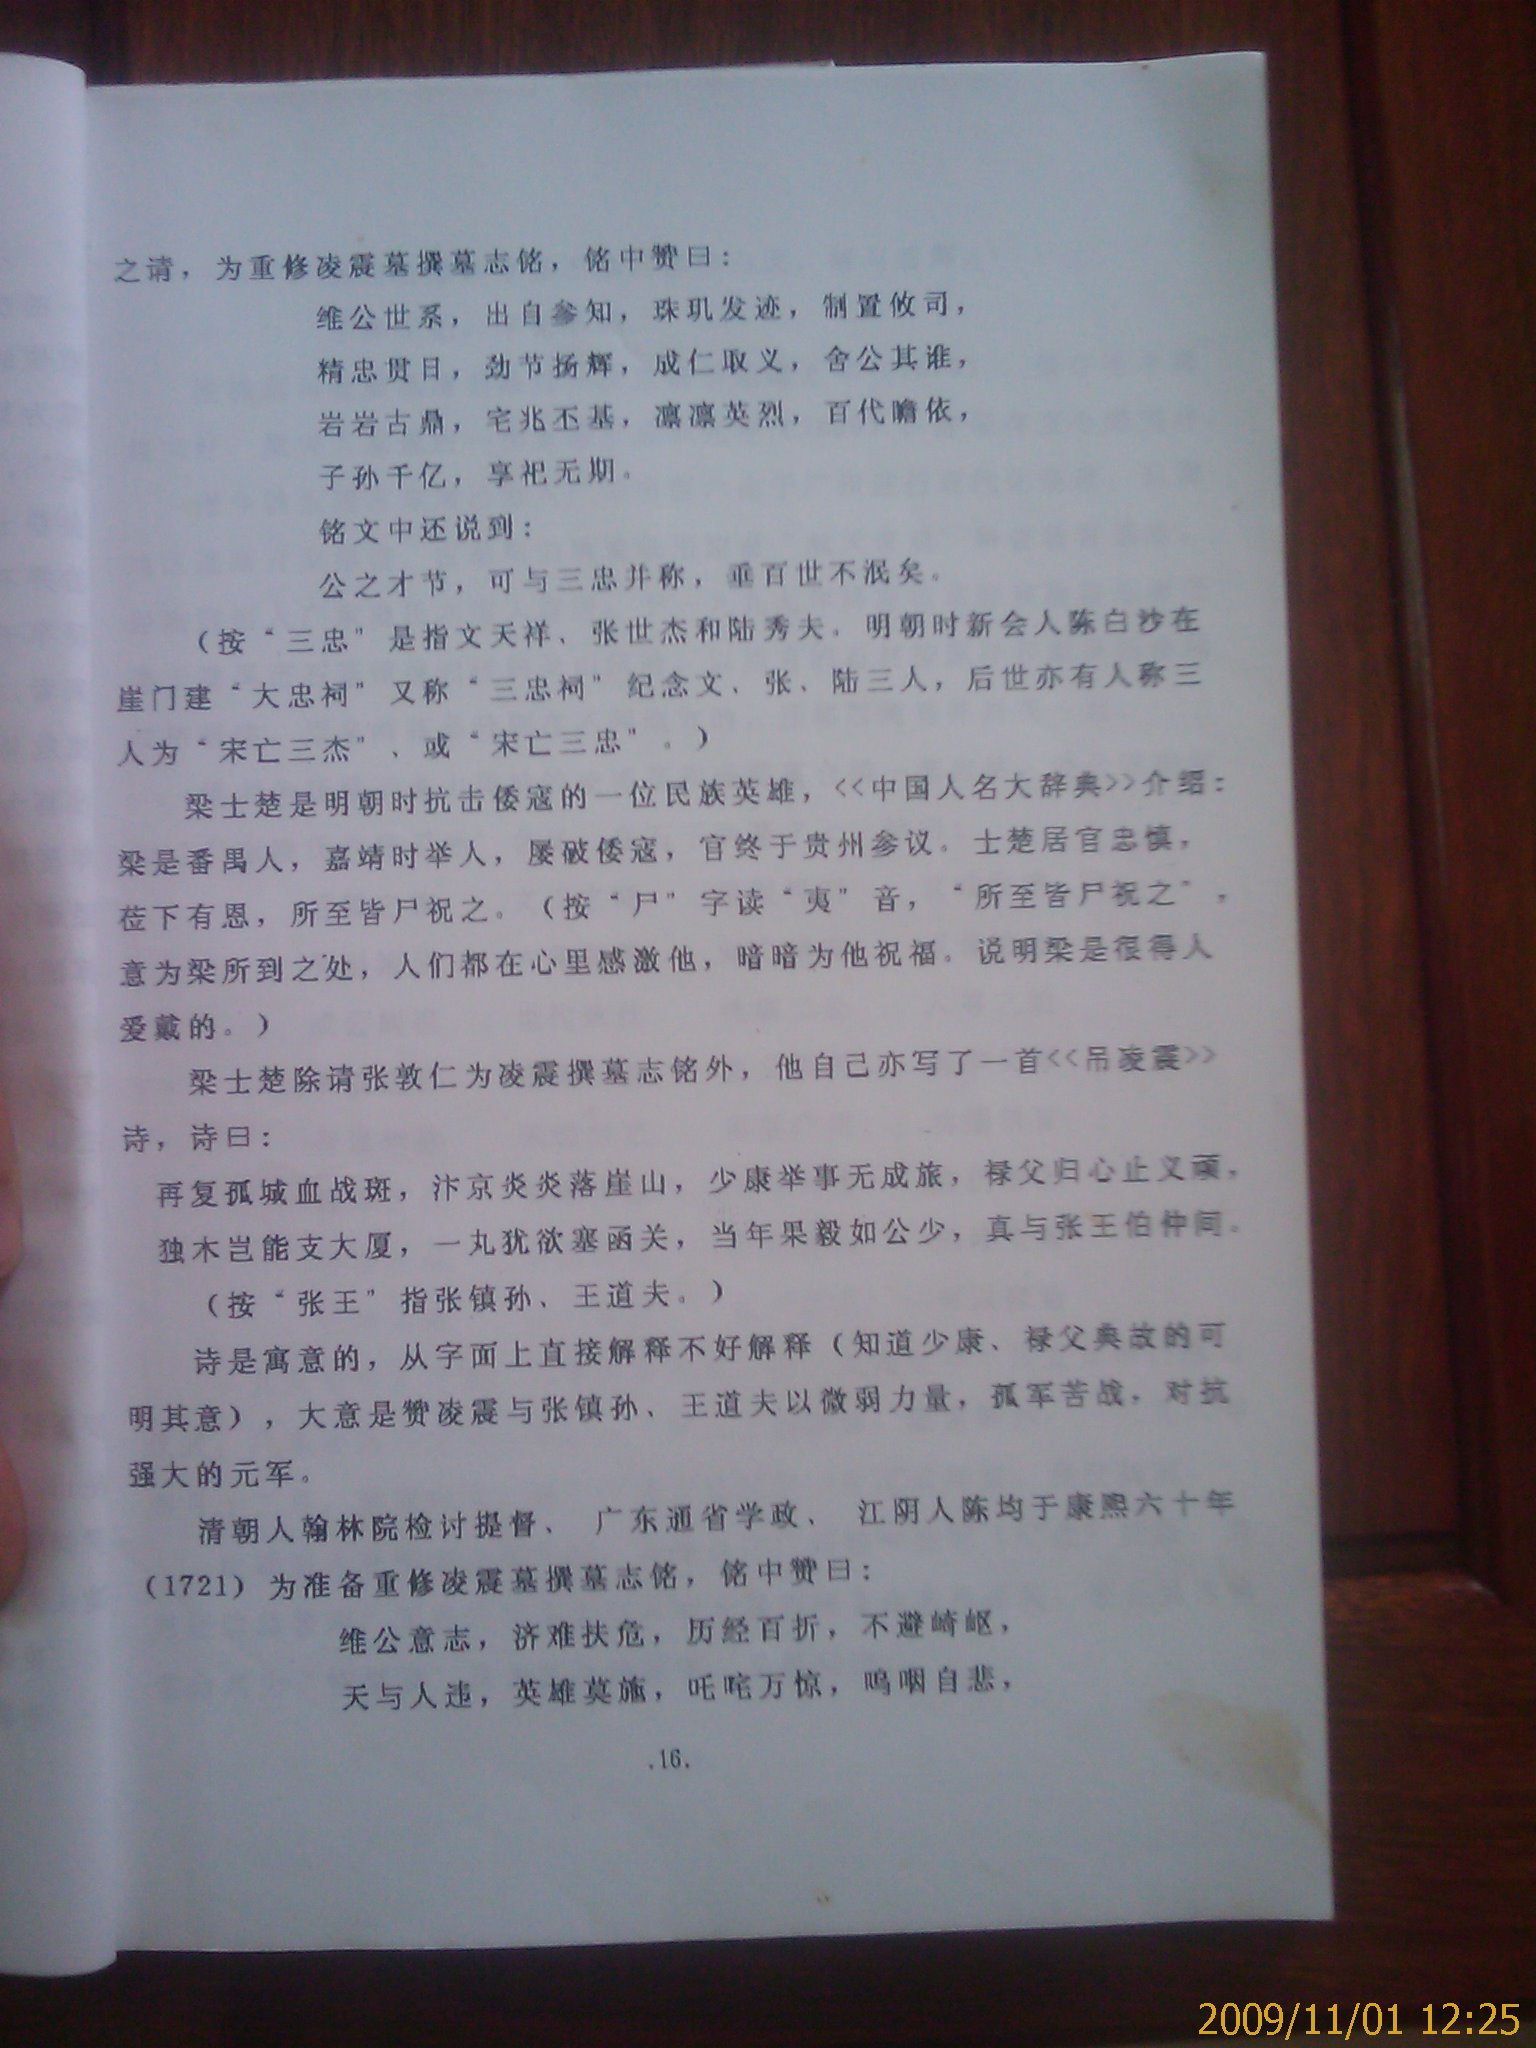 之请，为重修凌震墓撰墓志铭，铭中赞曰：
维公世系，出自参知，珠玑发迹，制置攸司，
精忠贯日，劲节扬辉，成仁取义，舍公其谁，
岩岩古鼎，宅兆丕基，凛凛英烈，百代瞻依，
子孙千亿，享祀无期。
铭文中还说到：
公之才节，可与三忠并称，垂百世不泯矣。
（按“三忠”是指文天祥、张世杰和陆秀夫。明朝时新会人陈白沙在
崖门建“大忠祠”又称“三忠祠”纪念文、张、陆三人，后世亦有人称三
人为“宋亡三杰”、或“宋亡三忠”。）
梁士楚是明朝时抗击倭寇的一位民族英雄，<<中国人名大辞典>>介绍：
梁是番禺人，嘉靖时举人，屡破倭寇，官终于贵州参议。士楚居官忠慎，
莅下有恩，所至皆尸祝之。（按“尸”字读“夷”音，“所至皆尸祝之”，
意为梁所到之处，人们都在心里感激他，暗暗为他祝福。说明梁是很得人
爱戴的。）
梁士楚除请张敦仁为凌震撰墓志铭外，他自己亦写了一首<<吊凌震>>
诗，诗曰：
再复孤城血战斑，汴京炎炎落崖山，少康举事无成旅，禄父归心止义顽，
独木岂能支大厦，一丸犹欲塞函关，当年果毅如公少，真与张王伯仲间。
（按“张王”指张镇孙、王道夫。）
诗是寓意的，从字面上直接解释不好解释（知道少康、禄父典故的可
明其意），大意是赞凌震与张镇孙、王道夫以微弱力量，孤军苦战，对抗
强大的元军。
清朝人翰林院检讨提督、 广东通省学政、 江阴人陈均于康熙六十年
（1721）为准备重修凌震墓撰墓志铭，铭中赞曰：
维公意志，济难扶危，历经百折，不避崎岖，
天与人违，英雄莫施，吒咤万惊，呜咽自悲，
.16.
2009/11/01 12:25